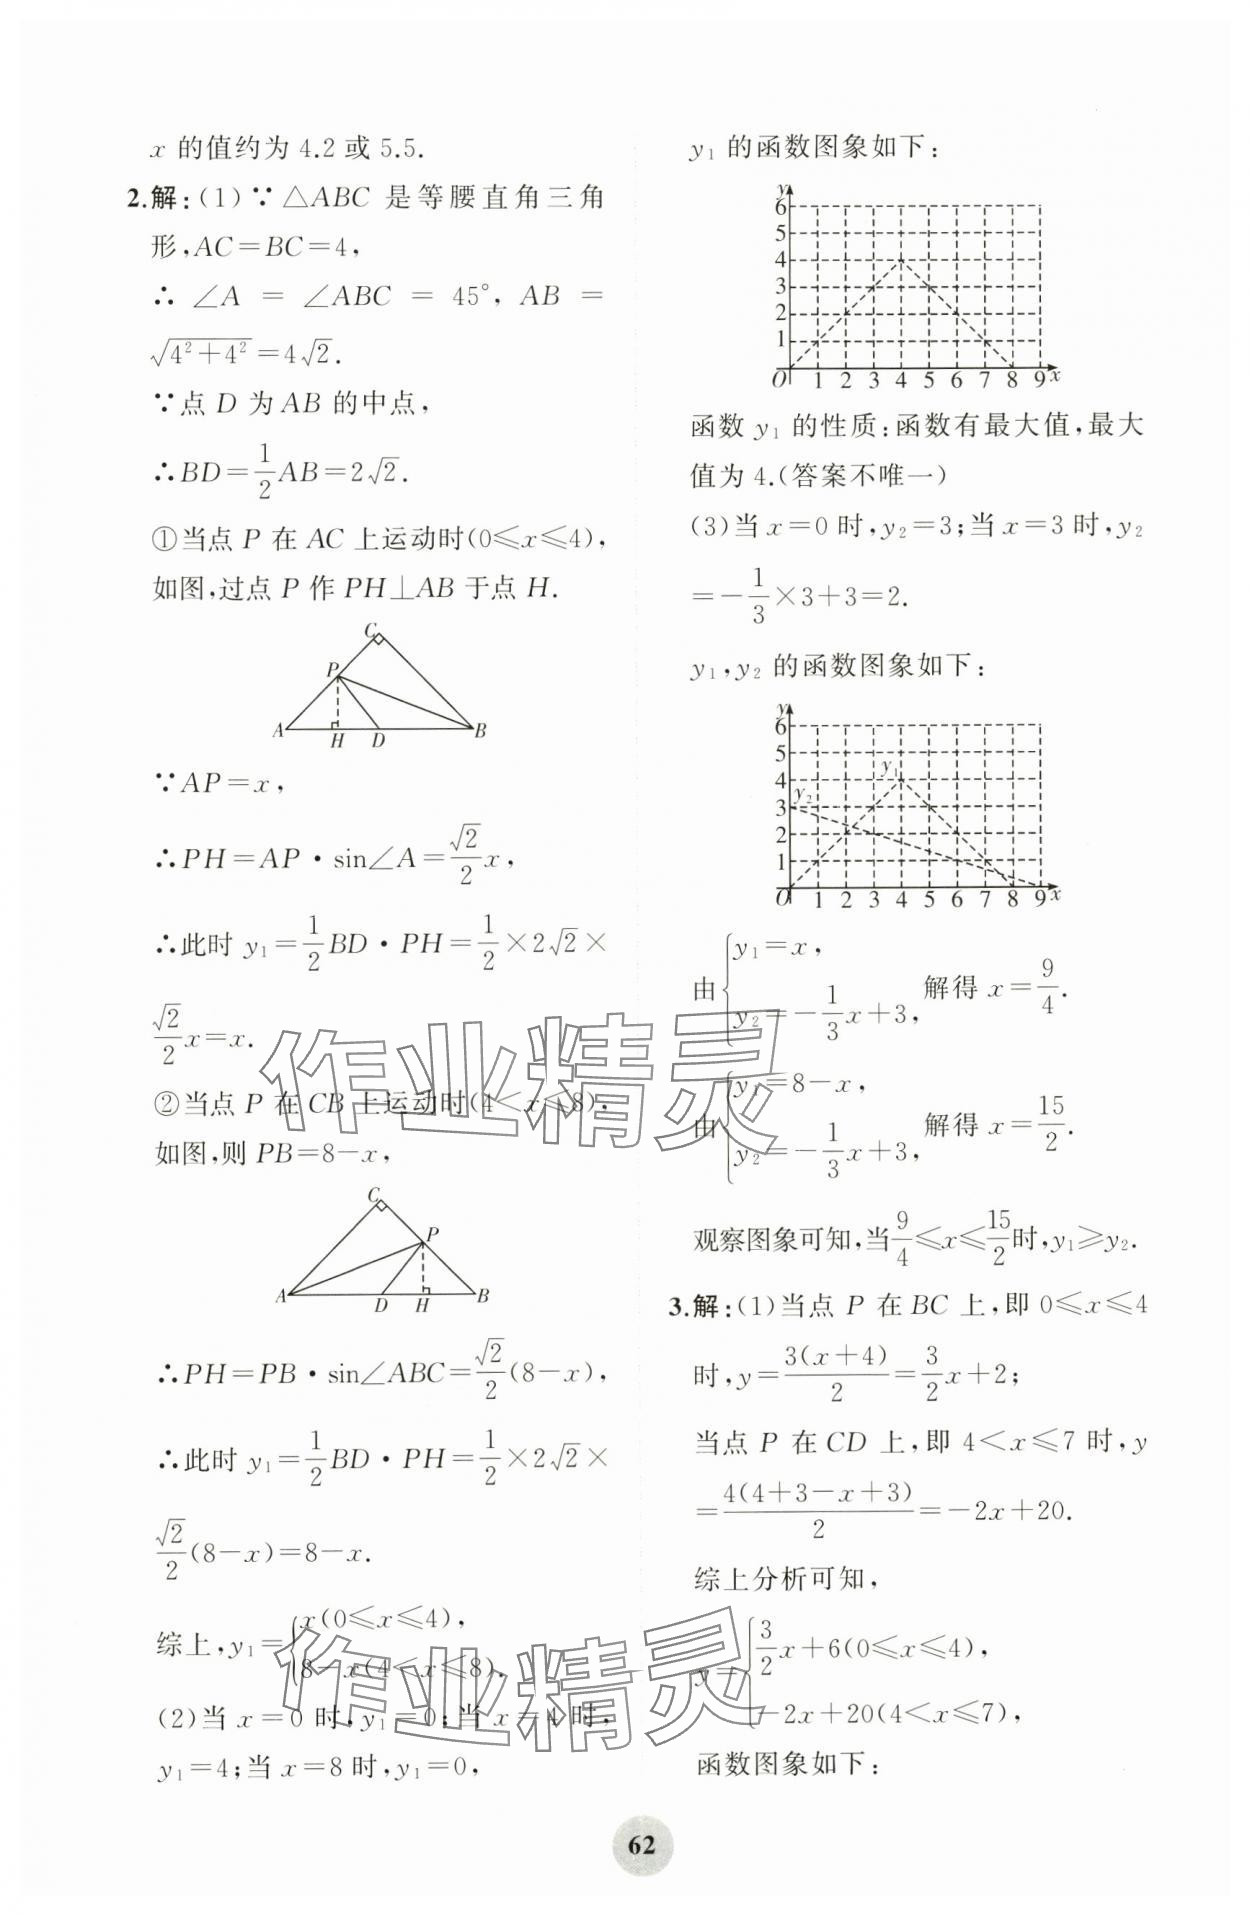 x 的值约为 4.2 或 5.5.
2.解:(1)∵△ABC 是等腰直角三角
形,AC=BC=4,
∴∠A = ∠ABC = 45°, AB =
√(4²+4²)=4√2.
∵点 D 为 AB 的中点,
∴BD=1/2AB=2√2.
①当点 P 在 AC 上运动时(0≤x≤4),
如图,过点 P 作 PH⊥AB 于点 H.
C
P
A H D B
∵AP=x,
∴PH=AP·sin∠A=√2/2x,
∴此时 y₁=1/2BD·PH=1/2×2√2×
√2/2x=x.
②当点 P 在 CB 上运动时(4<x≤8),
如图,则 PB=8-x,
C
P
A D H B
∴PH=PB·sin∠ABC=√2/2(8-x),
∴此时 y₁=1/2BD·PH=1/2×2√2×
√2/2(8-x)=8-x.
综上,y₁={x(0≤x≤4),
8-x(4<x≤8).
(2)当 x=0 时,y₁=0;当 x=4 时,
y₁=4;当 x=8 时,y₁=0,
y₁ 的函数图象如下:
y
6
5
4
3
2
1
O 1 2 3 4 5 6 7 8 9 x
函数 y₁ 的性质:函数有最大值,最大
值为 4.(答案不唯一)
(3)当 x=0 时,y₂=3;当 x=3 时,y₂
=-1/3×3+3=2.
y₁,y₂ 的函数图象如下:
y
6
5
4 y₁
3 y₂
2
1
O 1 2 3 4 5 6 7 8 9 x
由{y₁=x,
y₂=-1/3x+3, 解得 x=9/4.
由{y₁=8-x,
y₂=-1/3x+3, 解得 x=15/2.
观察图象可知,当9/4≤x≤15/2时,y₁≥y₂.
3.解:(1)当点 P 在 BC 上,即 0≤x≤4
时,y=3(x+4)/2=3/2x+2;
当点 P 在 CD 上,即 4<x≤7 时,y
=4(4+3-x+3)/2=-2x+20.
综上分析可知,
y={3/2x+6(0≤x≤4),
-2x+20(4<x≤7),
函数图象如下:
作业精灵
作业精灵
62